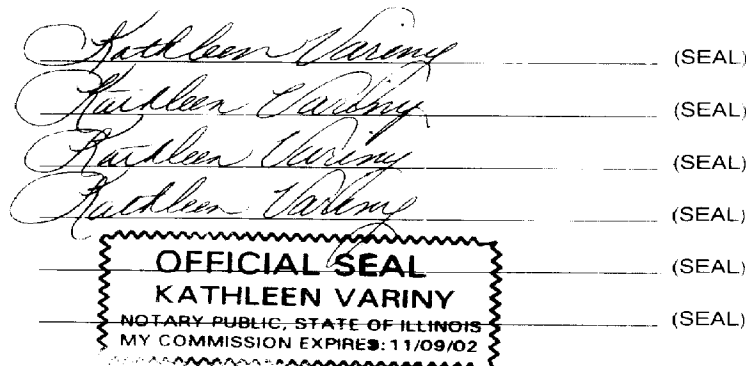 Kathleen Variny (SEAL)
Kathleen Variny (SEAL)
Kathleen Variny (SEAL)
Kathleen Variny (SEAL)
OFFICIAL SEAL (SEAL)
KATHLEEN VARINY
NOTARY PUBLIC, STATE OF ILLINOIS (SEAL)
MY COMMISSION EXPIRES: 11/09/02